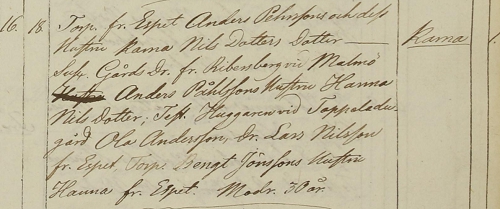 16. 18. Torp. fr. Espet Anders Pehrssons och dess
Hustru Karna Nils Dotters Dotter Karna 1.
Susc. Gårds Dr. fr. Ribersberg vid Malmö
Hustru Anders Påhlssons Hustru Hanna
Nils Dotter; Test. Huggaren vid Toppelade-
gård Ola Andersson, Dr. Lars Nilsson
fr. Espet, Torp. Bengt Jönssons Hustru
Hanna fr. Espet. Modr. 30 år.